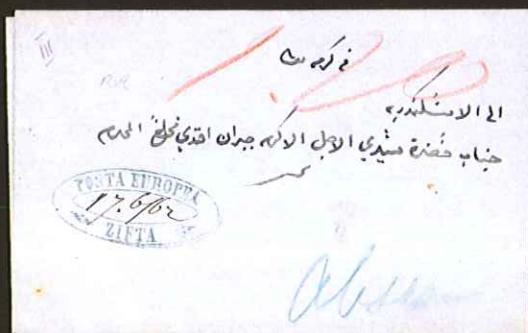 III
الى الاسكندريه
جناب حضرة سيدي الاجل الاكرم جبران افندي المحترم
POSTA EUROPEA
17.6/62
ZIFTA